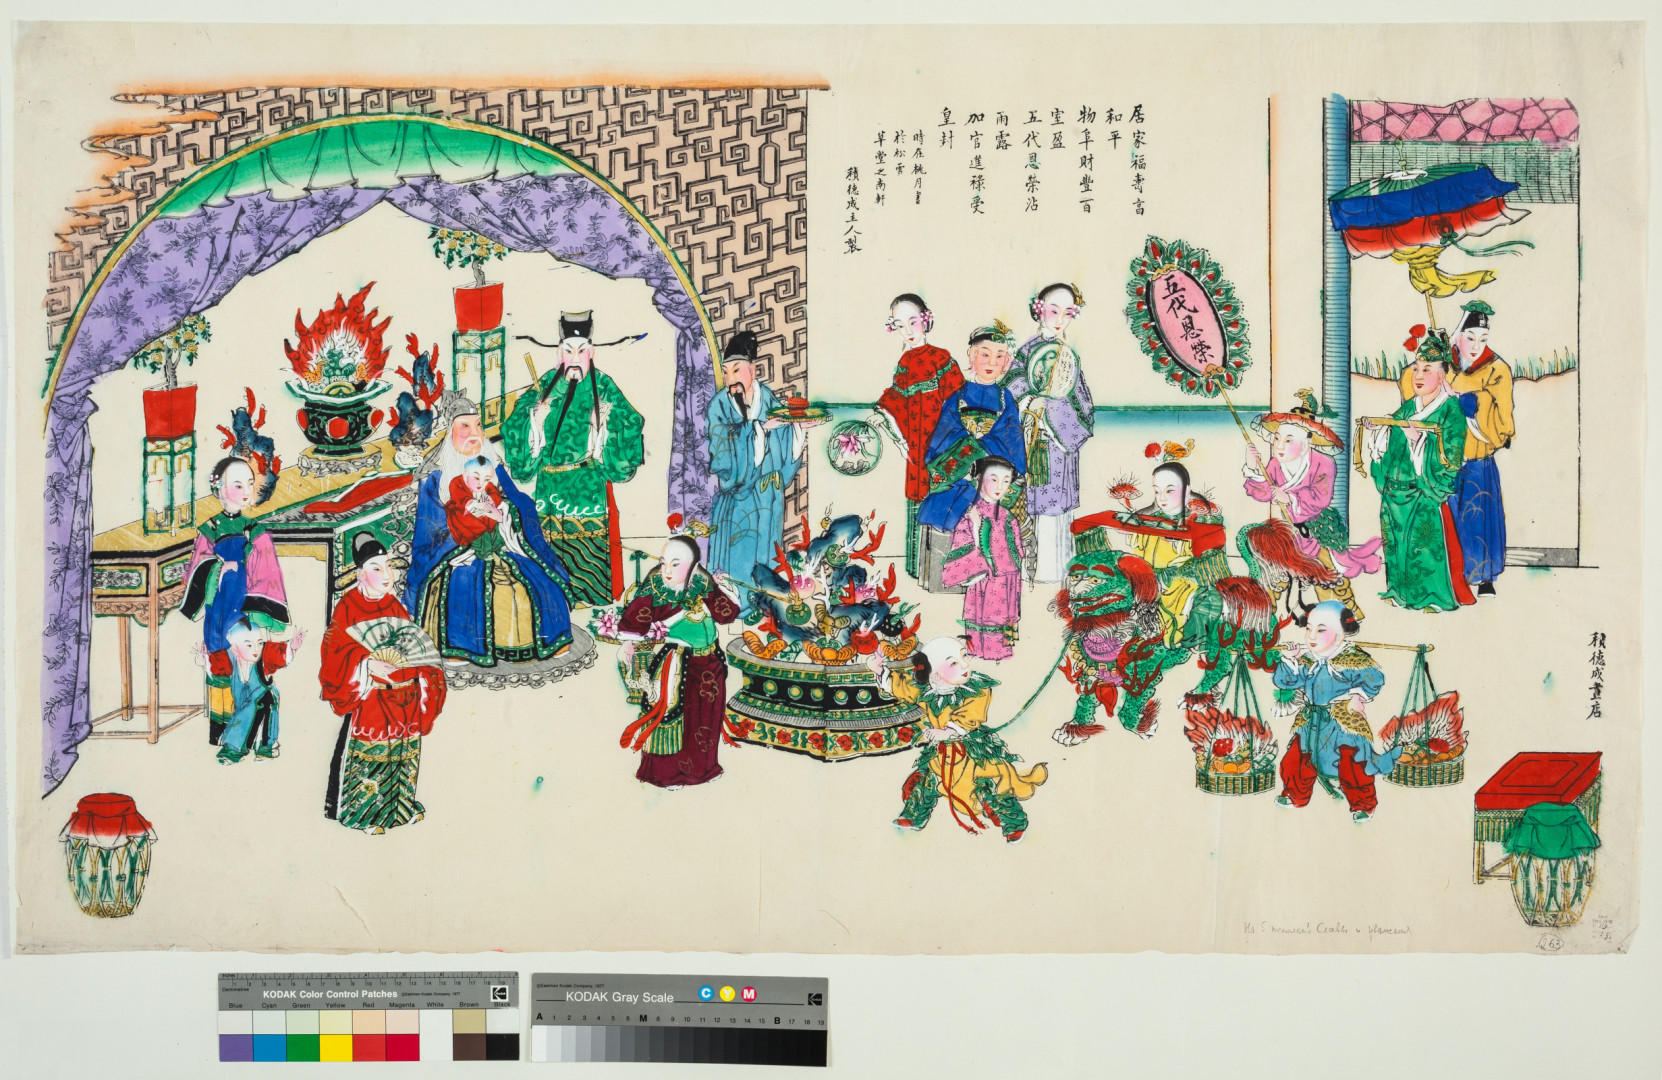 居家福壽富
和平
物阜財豐百
室盈
五代恩榮沾
雨露
加官進祿受
皇封
時在桃月書
於松雪
草堂之南軒
積德成主人製
五代恩榮
積德成畫店
263
KODAK Color Control Patches
Blue Cyan Green Yellow Red Magenta White Brown Black
KODAK Gray Scale
C Y M
A 1 2 3 4 5 6 M 8 9 10 11 12 13 14 15 B 17 18 19